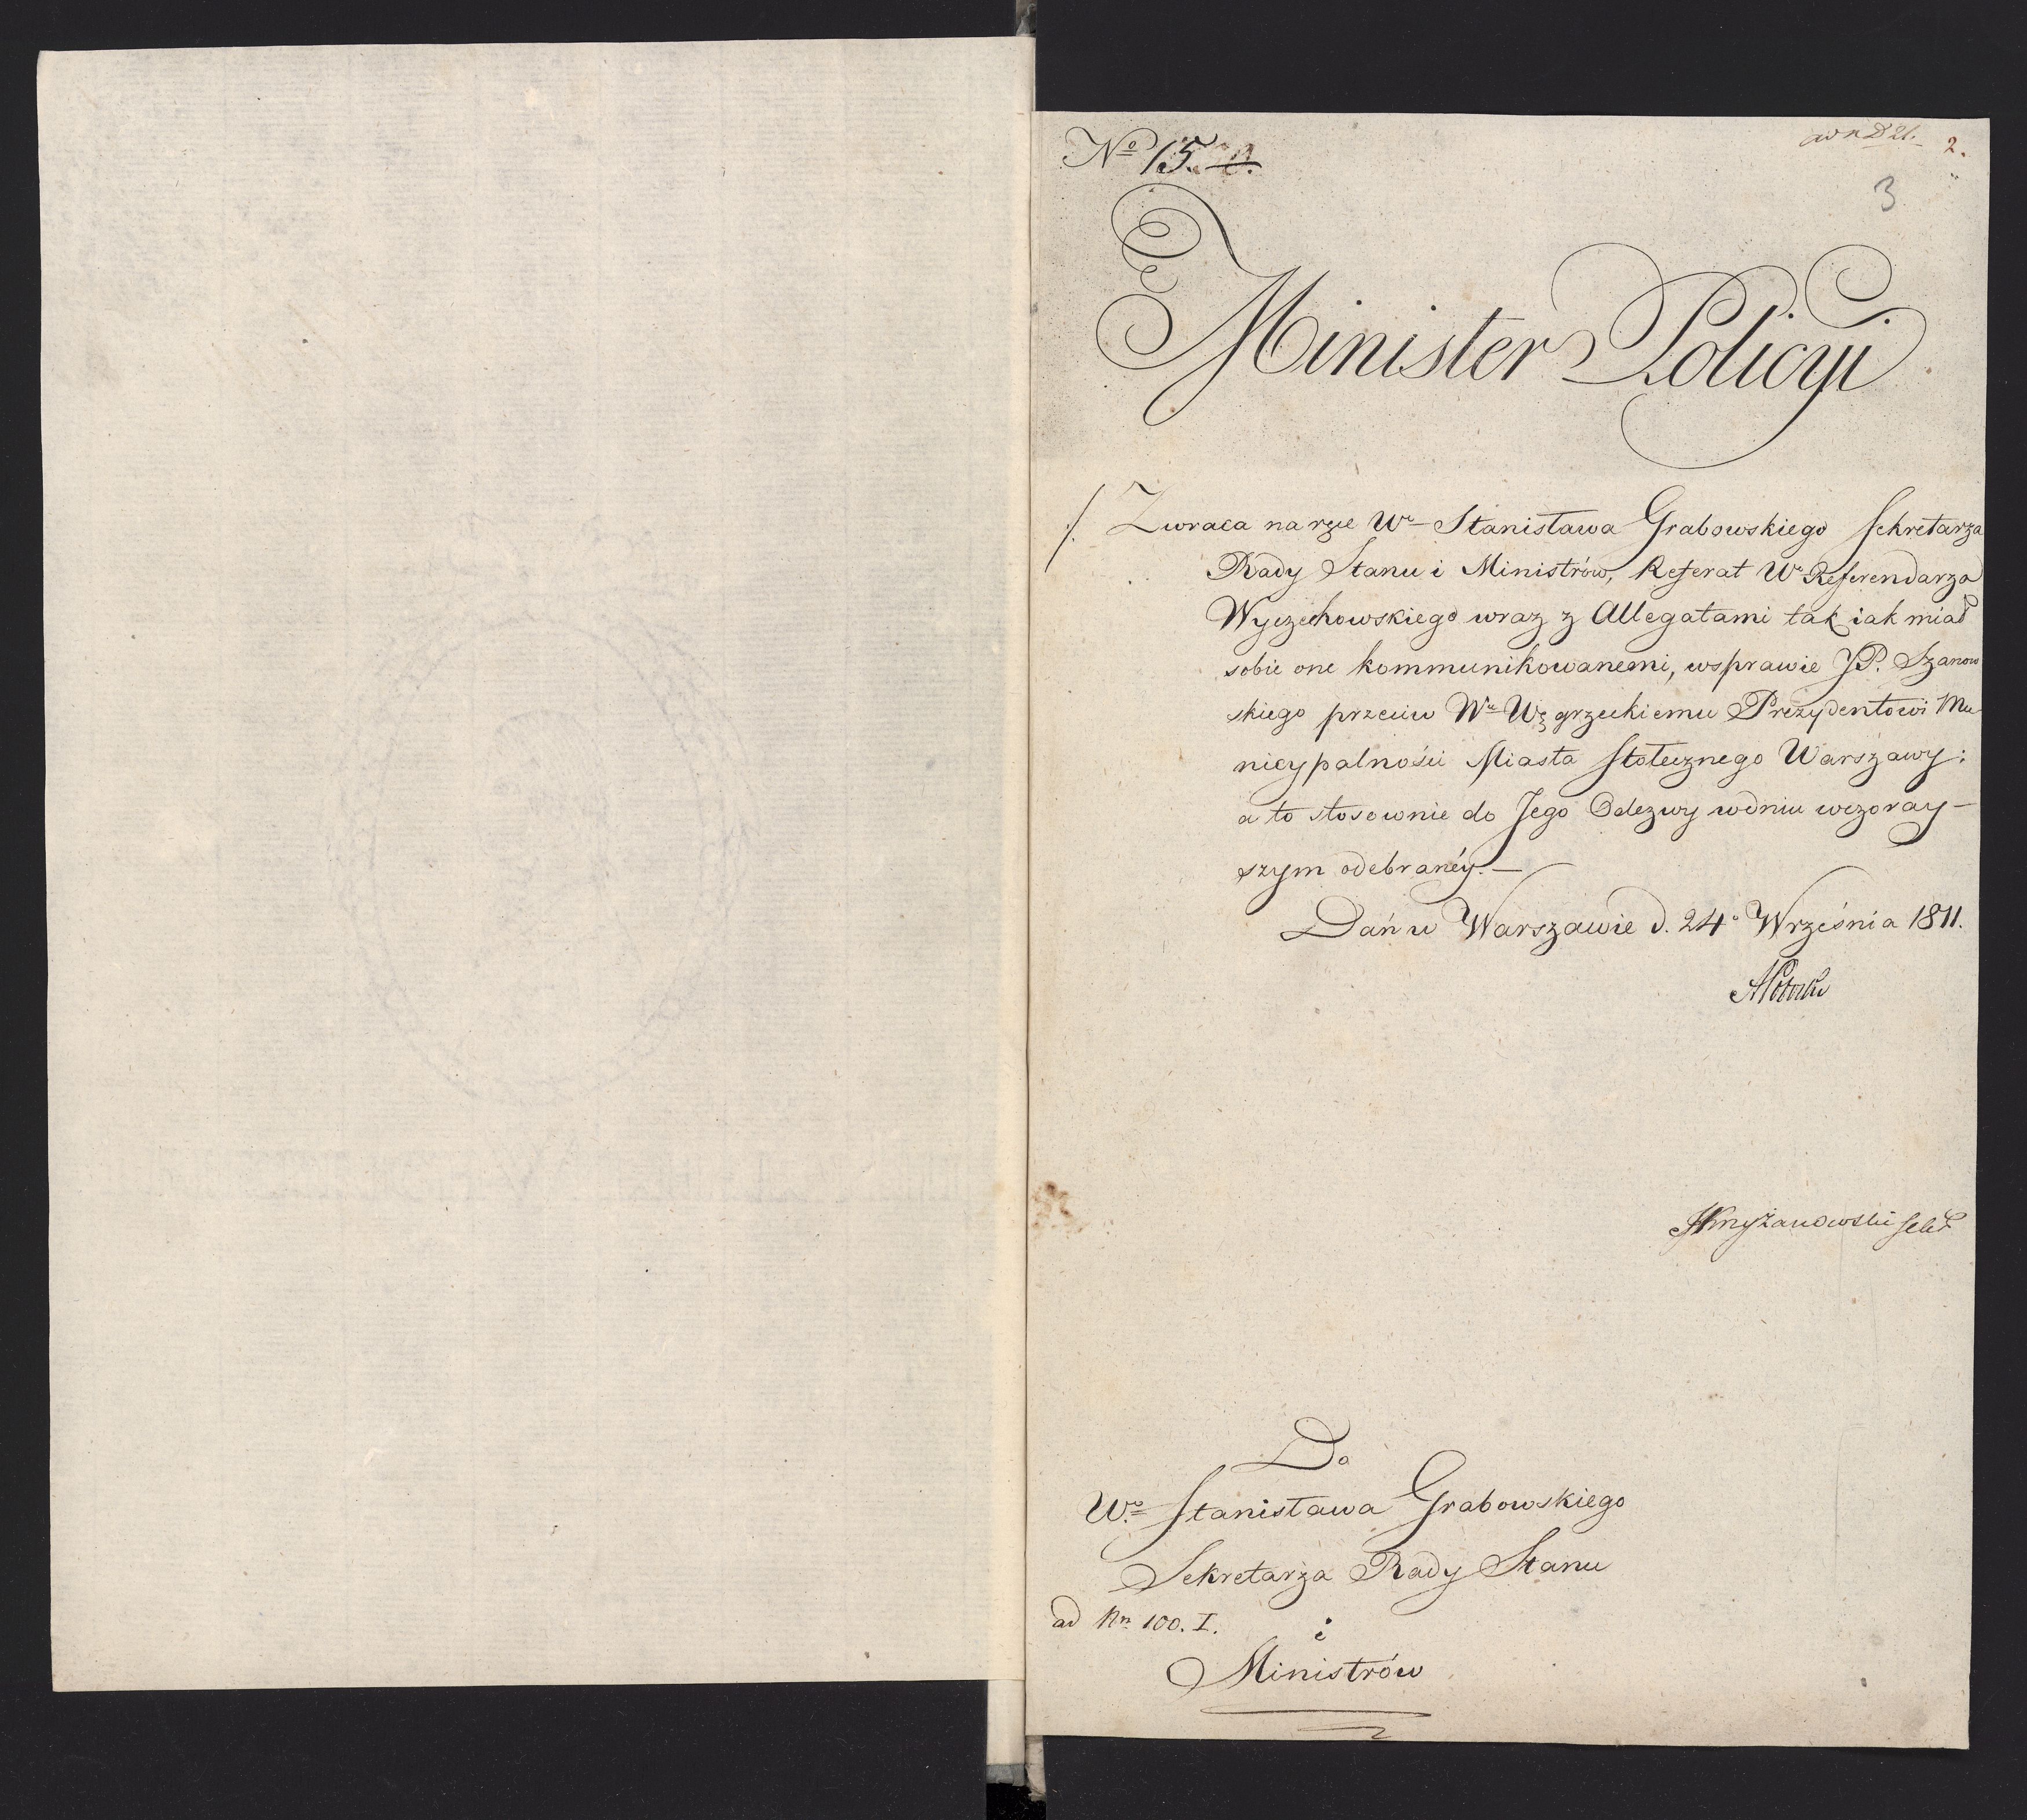 No 15.
2.
3
Minister Policyi
Zwraca na ręce Wo Stanisława Grabowskiego Sekretarza
Rady Stanu i Ministrów, Referat Wo Referendarza
Wyczechowskiego wraz z Allegatami tak iak miał
sobie one kommunikowanemi, wsprawie JP. Szanow
skiego przeciw Wu Węgrzeckiemu Prezydentowi Mu
nicypalności Miasta Stołecznego Warszawy:
a to stosownie do Jego Odezwy wdniu wczoray-
szym odebranéy.—
Dań w Warszawie d. 24o Września 1811.
APotocki
Krzyżanowski Sekr
Do
Wo Stanisława Grabowskiego
Sekretarza Rady Stanu
ad Nn 100. I.
i
Ministrów